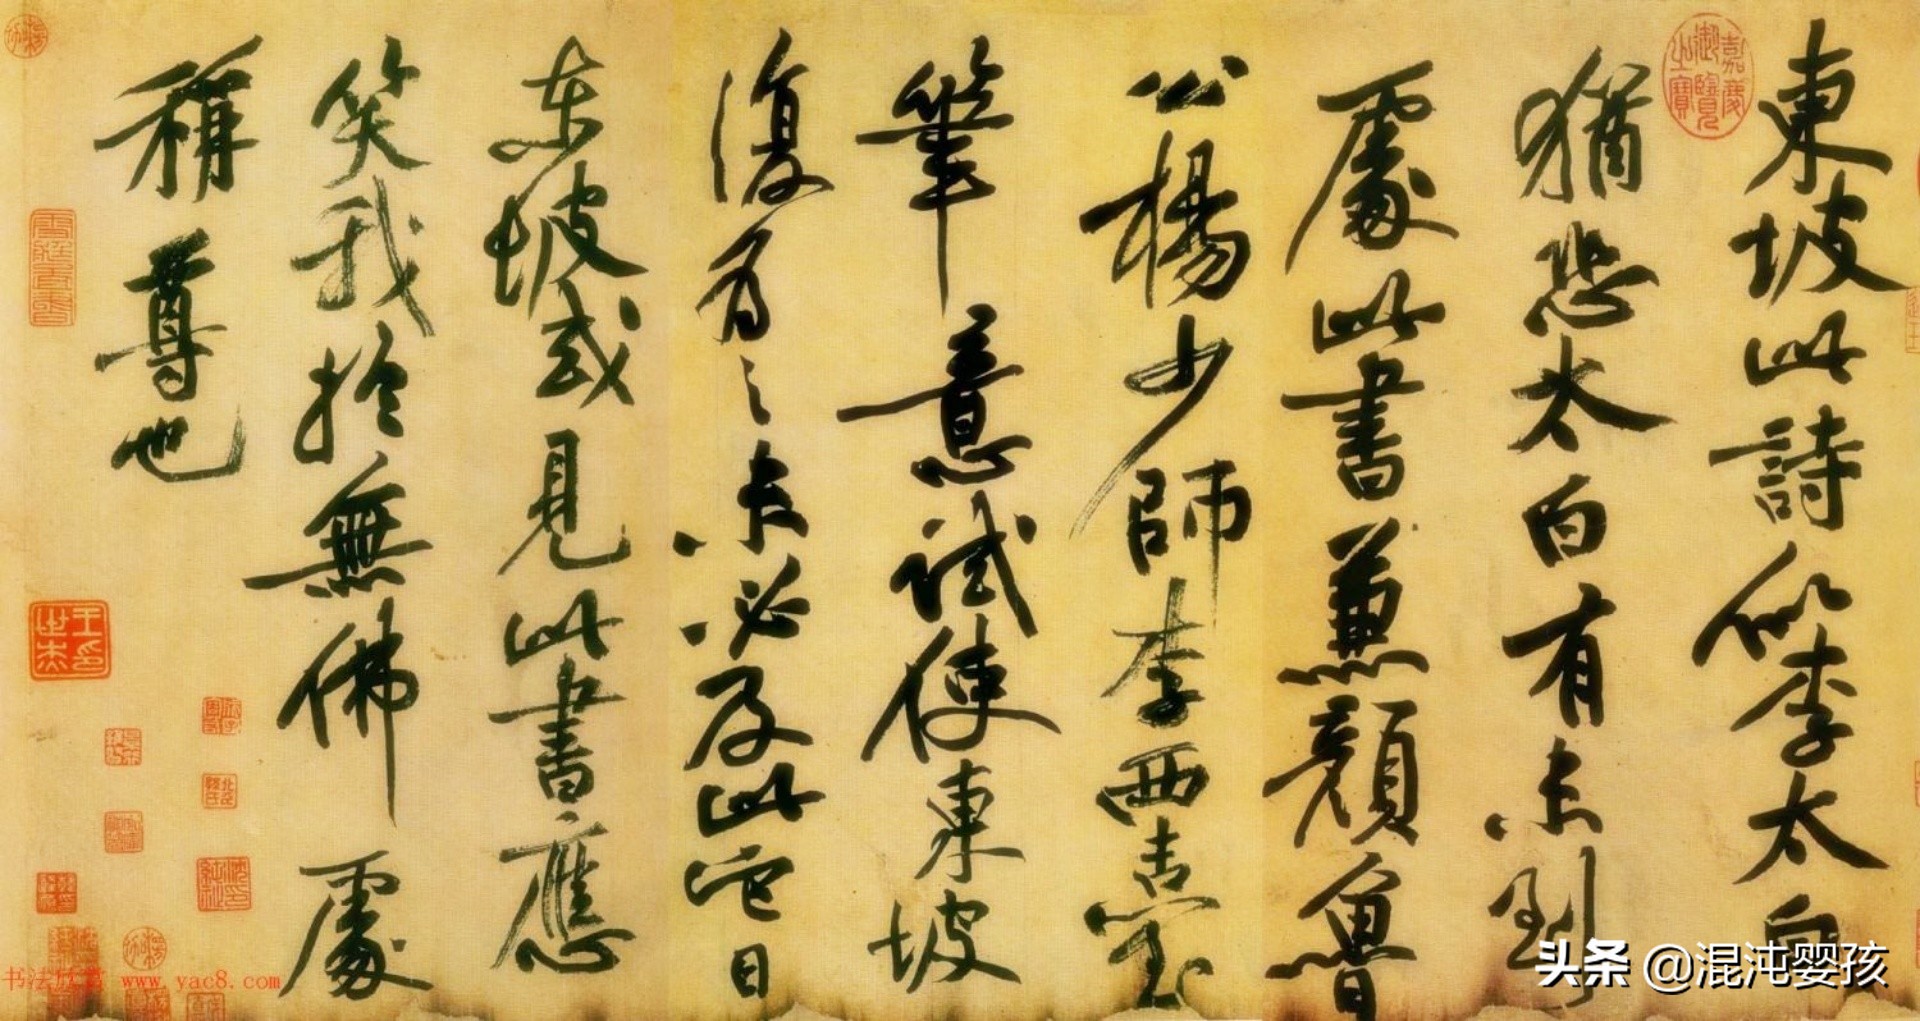 東坡此詩似李太白
猶恐太白有未到
處此書兼顏魯
公楊少師李西臺
筆意試使東坡
復為之未必及此它日
东坡或見此書應
笑我於無佛處
稱尊也
嘉慶御覽之寶
王印世杰
书法欣赏 www.yac8.com
头条 @混沌婴孩